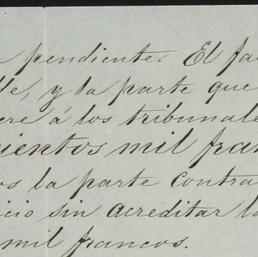 a pendiente. El fa
lle, y la parte que
ere á los tribunale
ientos mil fran
os la parte contra
icio sin acreditar la
mil francos.